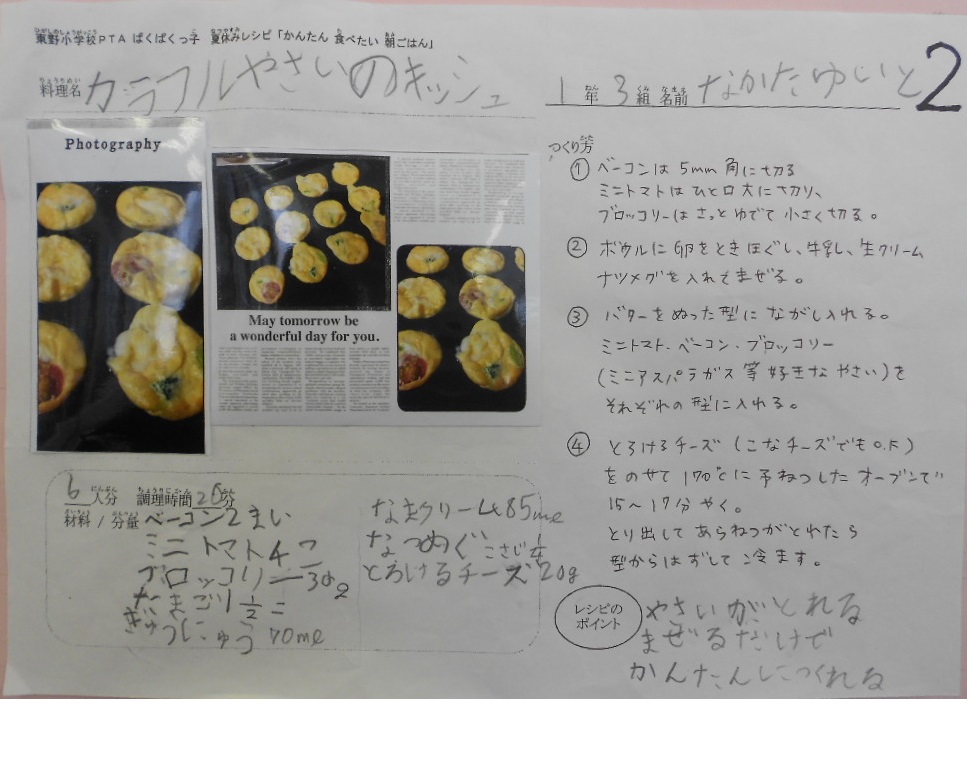 東野小学校PTA ぱくぱくっ子 夏休みレシピ「かんたん 食べたい 朝ごはん」
料理名 カラフルやさいのキッシュ
1年 3組 名前 なかたゆいと
2
Photography
May tomorrow be
a wonderful day for you.
6人分 調理時間 20分
材料/分量 ベーコン2まい
ミニトマト4こ
ブロッコリー30g
たまご1 1/2こ
ぎゅうにゅう70ml
なまクリーム85ml
なつめぐこさじ1/4
とろけるチーズ20g
つくり方
① ベーコンは5mm角に切る
ミニトマトはひと口大に切り、
ブロッコリーはさっとゆでて小さく切る。
② ボウルに卵をときほぐし、牛乳、生クリーム
ナツメグを入れてまぜる。
③ バターをぬった型にながし入れる。
ミニトマト・ベーコン・ブロッコリー
(ミニアスパラガス等好きなやさい)を
それぞれの型に入れる。
④ とろけるチーズ(こなチーズでもO.K)
をのせて170℃に予ねつしたオーブンで
15～17分やく。
とり出してあらねつがとれたら
型からはずして冷ます。
レシピの
ポイント
やさいがとれる
まぜるだけで
かんたんにつくれる